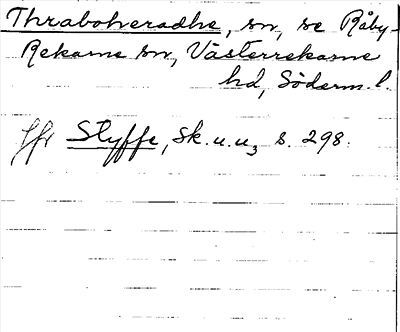 Thraboheradhe, sn, se Råby-
Rekarne sn, Västerrekarne
hd, Söderm. l.
Jfr Styffe, Sk. u. u., s. 298.